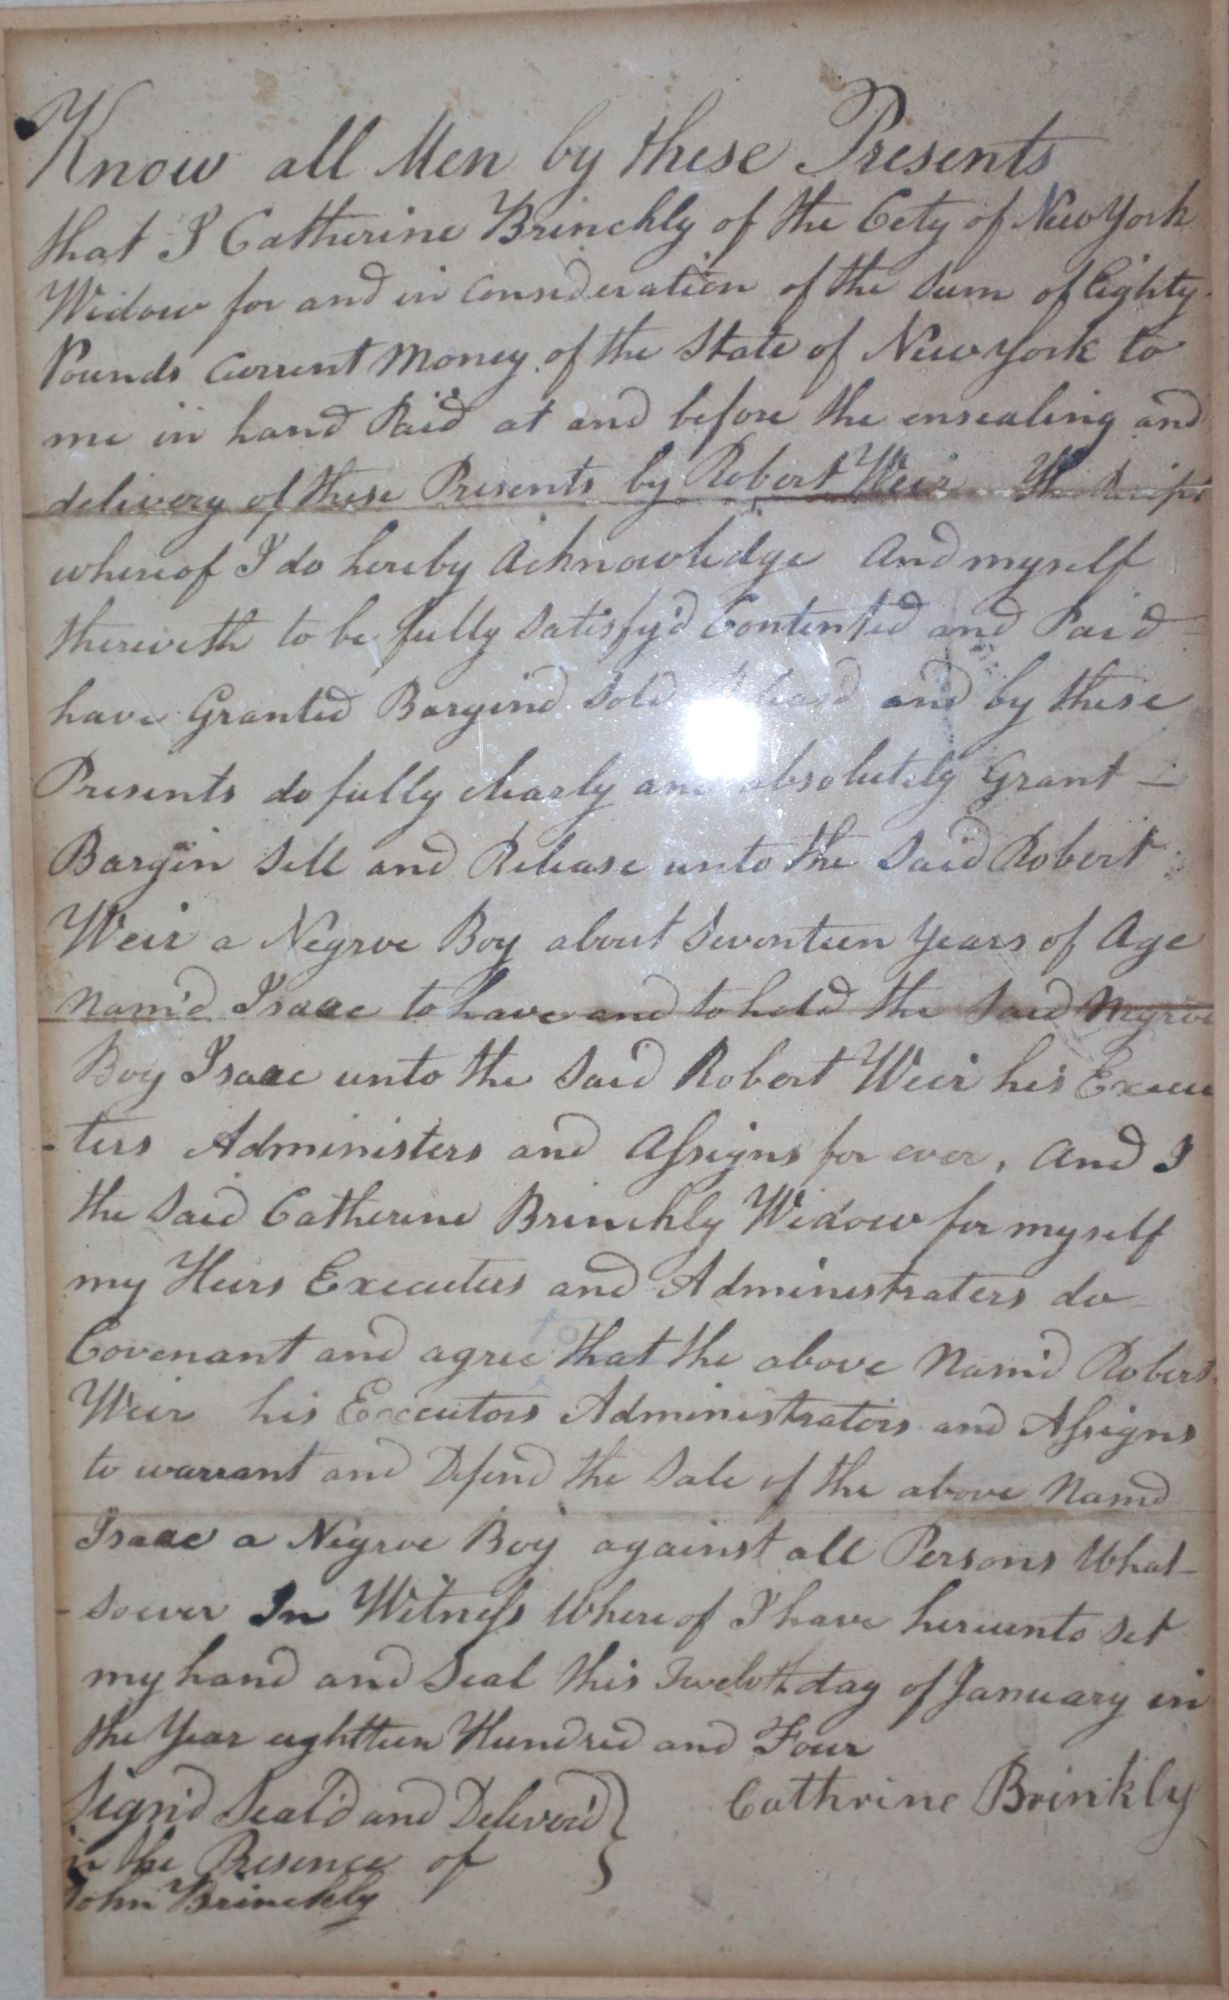 Know all Men by these Presents
that I Catherine Brinckly of the Cety of New York
Widow for and in Consideration of the Sum of Eighty
Pounds Current Money of the State of New York to
me in hand Paid at and before the ensealing and
delivery of these Presents by Robert Weir The
whereof I do hereby Acknowledge And myself
therewith to be fully Satisfy'd Contented and Paid
have Granted Bargind Sold and by these
Presents do fully clearly and absolutely Grant
Bargin Sell and Release unto the Said Robert
Weir a Negroe Boy about Seventeen Years of Age
Nam'd Isaac to have and to hold the Said Negroe
Boy Isaac unto the Said Robert Weir his Execu
-ters Administers and Assigns for ever, And I
the Said Catherine Brinckly Widow for myself
my Heirs Executers and Administraters do
Covenant and agree to that the above Nam'd Robert
Weir his Executors Administrators and Assigns
to warrant and Defend the Sale of the above Namd
Isaac a Negroe Boy against all Persons What-
-soever In Witness Whereof I have hereunto Set
my hand and Seal this Twelvth day of January in
the Year eightteen Hundred and Four
Sign'd Seal'd and Deliver'd
in the Presence of
John Brinckly
Cathrine Brinkly